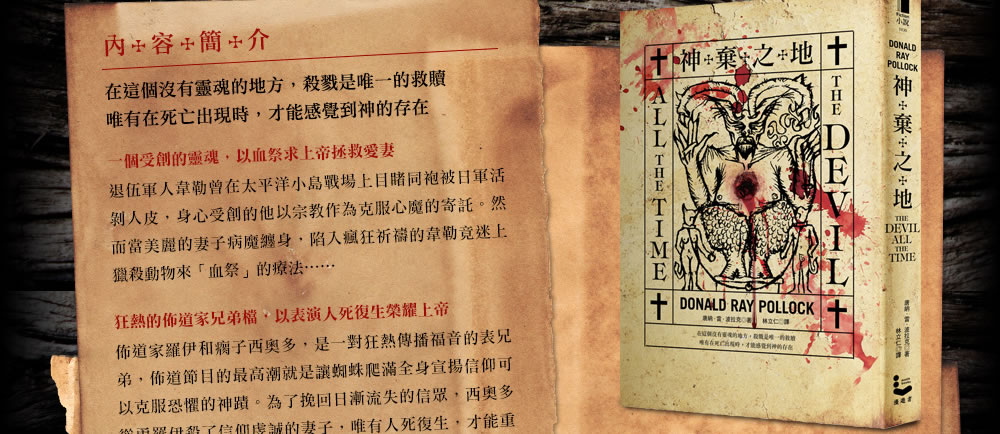 內容簡介
在這個沒有靈魂的地方，殺戮是唯一的救贖
唯有在死亡出現時，才能感覺到神的存在
一個受創的靈魂，以血祭求上帝拯救愛妻
退伍軍人韋勒曾在太平洋小島戰場上目睹同袍被日軍活
剝人皮，身心受創的他以宗教作為克服心魔的寄託。然
而當美麗的妻子病魔纏身，陷入瘋狂祈禱的韋勒竟迷上
獵殺動物來「血祭」的療法……
狂熱的佈道家兄弟檔，以表演人死復生榮耀上帝
佈道家羅伊和瘸子西奧多，是一對狂熱傳播福音的表兄
弟，佈道節目的最高潮就是讓蜘蛛爬滿全身宣揚信仰可
以克服恐懼的神蹟。為了挽回日漸流失的信眾，西奧多
從恿羅伊殺了信仰虔誠的妻子，唯有人死復生，才能重
神棄之地
ALL THE TIME
THE DEVIL
DONALD RAY POLLOCK
唐納·雷·波拉克◎著
林立仁◎譯
在這個沒有靈魂的地方，殺戮是唯一的救贖
唯有在死亡出現時，才能感覺到神的存在
小說
DONALD
RAY
POLLOCK
神棄之地
THE
DEVIL
ALL
THE
TIME
唐納·雷·波拉克◎著
林立仁◎譯